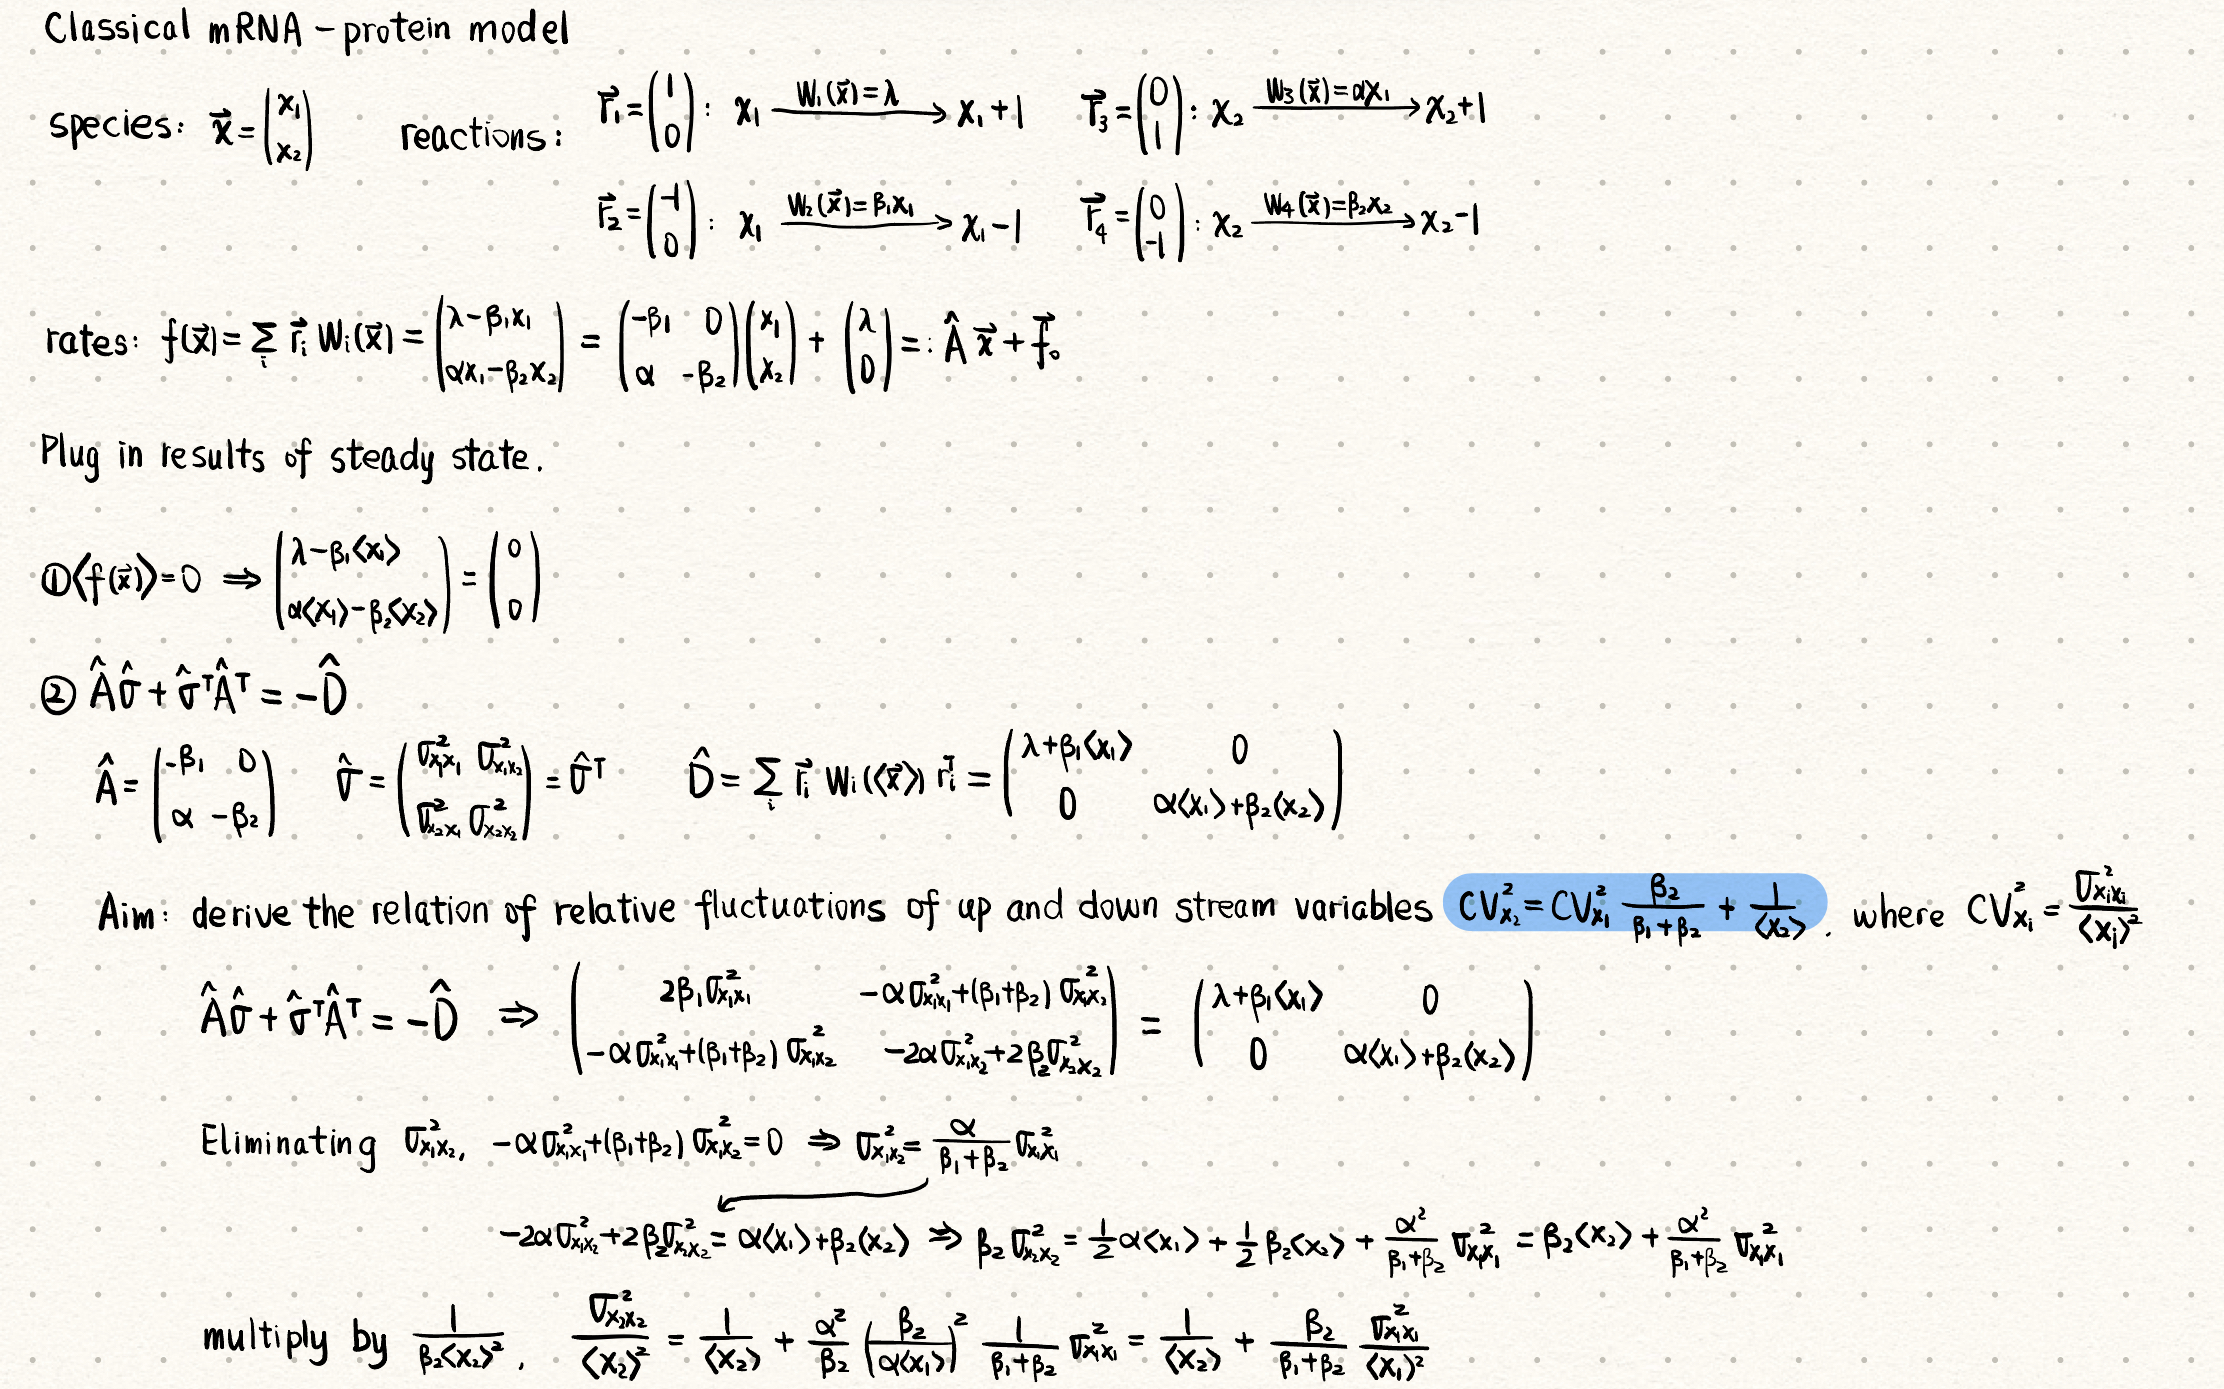 Classical mRNA – protein model
species: x⃗ = (x₁; x₂) reactions: r⃗₁ = (1; 0) : x₁ —W₁(x⃗)=λ→ x₁+1 r⃗₃ = (0; 1) : x₂ —W₃(x⃗)=αx₁→ x₂+1
r⃗₂ = (-1; 0) : x₁ —W₂(x⃗)=β₁x₁→ x₁−1 r⃗₄ = (0; -1) : x₂ —W₄(x⃗)=β₂x₂→ x₂−1
rates: f(x⃗) = Σᵢ r⃗ᵢ Wᵢ(x⃗) = (λ−β₁x₁; αx₁−β₂x₂) = (-β₁ 0; α -β₂)(x₁; x₂) + (λ; 0) =: Â x⃗ + f⃗₀
Plug in results of steady state.
① ⟨f(x⃗)⟩=0 ⇒ (λ−β₁⟨x₁⟩; α⟨x₁⟩−β₂⟨x₂⟩) = (0; 0)
② Âσ̂ + σ̂ᵀÂᵀ = −D̂
Â = (-β₁ 0; α -β₂) σ̂ = (σ²_{x₁x₁} σ²_{x₁x₂}; σ²_{x₂x₁} σ²_{x₂x₂}) = σ̂ᵀ D̂ = Σᵢ r⃗ᵢ Wᵢ(⟨x⃗⟩) r⃗ᵢᵀ = (λ+β₁⟨x₁⟩ 0; 0 α⟨x₁⟩+β₂⟨x₂⟩)
Aim: derive the relation of relative fluctuations of up and down stream variables CV²_{x₂} = CV²_{x₁} β₂/(β₁+β₂) + 1/⟨x₂⟩ . where CV²_{xᵢ} = σ²_{xᵢxᵢ}/⟨xᵢ⟩²
Âσ̂ + σ̂ᵀÂᵀ = −D̂ ⇒ (2β₁σ²_{x₁x₁} −ασ²_{x₁x₁}+(β₁+β₂)σ²_{x₁x₂}; −ασ²_{x₁x₁}+(β₁+β₂)σ²_{x₁x₂} −2ασ²_{x₁x₂}+2β₂σ²_{x₂x₂}) = (λ+β₁⟨x₁⟩ 0; 0 α⟨x₁⟩+β₂⟨x₂⟩)
Eliminating σ²_{x₁x₂}, −ασ²_{x₁x₁}+(β₁+β₂)σ²_{x₁x₂}=0 ⇒ σ²_{x₁x₂} = α/(β₁+β₂) σ²_{x₁x₁}
−2ασ²_{x₁x₂}+2β₂σ²_{x₂x₂} = α⟨x₁⟩+β₂⟨x₂⟩ ⇒ β₂σ²_{x₂x₂} = 1/2 α⟨x₁⟩ + 1/2 β₂⟨x₂⟩ + α²/(β₁+β₂) σ²_{x₁x₁} = β₂⟨x₂⟩ + α²/(β₁+β₂) σ²_{x₁x₁}
multiply by 1/(β₂⟨x₂⟩²), σ²_{x₂x₂}/⟨x₂⟩² = 1/⟨x₂⟩ + α²/β₂ (β₂/(α⟨x₁⟩))² 1/(β₁+β₂) σ²_{x₁x₁} = 1/⟨x₂⟩ + β₂/(β₁+β₂) σ²_{x₁x₁}/⟨x₁⟩²